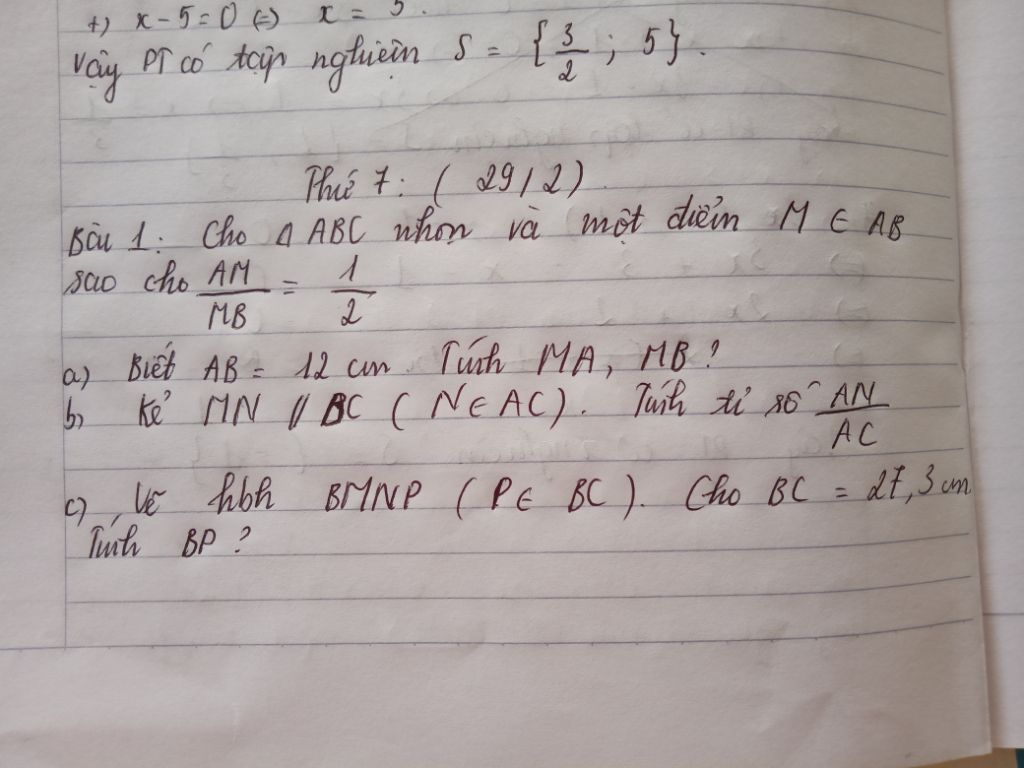 +) x - 5 = 0 (=) x = 5.
Vậy PT có tập nghiệm S = { 3/2 ; 5 }.
Thứ 7: ( 29/2)
Bài 1: Cho Δ ABC nhọn và một điểm M ∈ AB
sao cho AM/MB = 1/2
a) Biết AB = 12 cm Tính MA, MB?
b) Kẻ MN // BC ( N ∈ AC). Tính tỉ số AN/AC
c) Vẽ hbh BMNP ( P ∈ BC). Cho BC = 27,3 cm
Tính BP ?